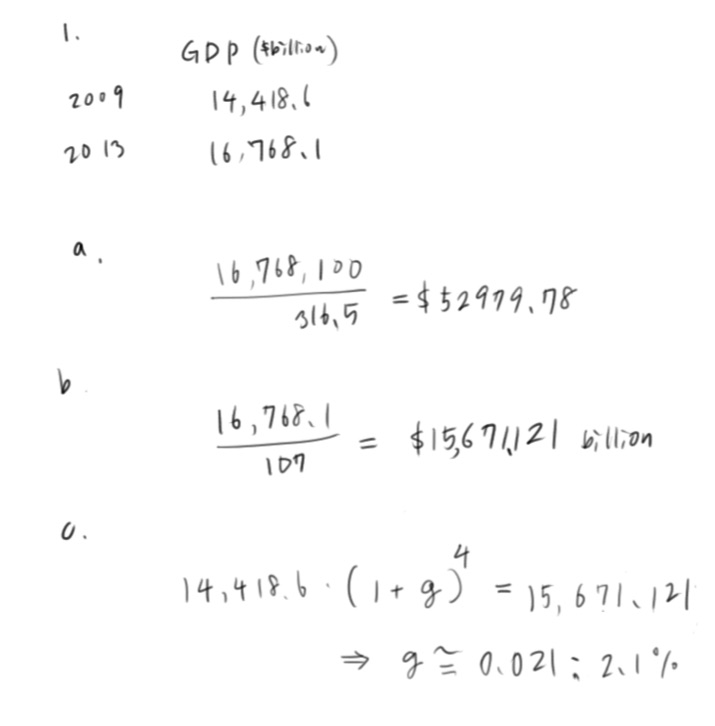 1.
GDP ($billion)
2009 14,418.6
2013 16,768.1
a.
16,768,100
316.5
= $52979.78
b
16,768.1
107
= $15,671.121 billion
c.
14,418.6 · (1+g)^4 = 15,671.121
⇒ g ≅ 0.021 : 2.1%